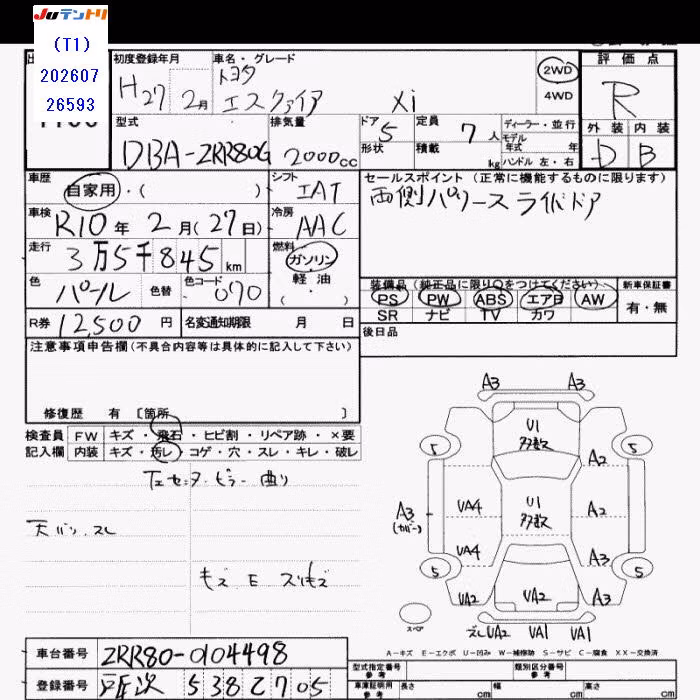 Juテントリ
(T1)
202607
26593
初度登録年月
H27 2月
車名・グレード
トヨタ
エスクァイア Xi
2WD
4WD
評価点
R
外装 内装
D B
型式
DBA-ZRR80G
排気量
2000cc
ドア
5
形状
定員
7人
積載
kg
ディーラー・並行
モデル
年式 年
ハンドル 左・右
車歴
自家用・( )
シフト
IAT
車検
R10年 2月(27日)
冷房
AAC
走行
3万5千845km
燃料
ガソリン
軽油
( )
色
パール
色替
色コード
070
R券 12,500円
名変通知期限 月 日
セールスポイント(正常に機能するものに限ります)
両側パワースライドドア
装備品(純正品に限り○をつけてください)
PS PW ABS エアB AW
SR ナビ TV カワ
新車保証書
有・無
後日品
注意事項申告欄(不具合内容等は具体的に記入して下さい)
修復歴 有 [箇所 ]
検査員 FW キズ・飛石・ヒビ割・リペア跡・×要
記入欄 内装 キズ・汚レ・コゲ・穴・スレ・キレ・破レ
曲り
スレ
キズ E
A3 A3
U1
多数
5 5
A2
A3
(カバー)
UA4
U1
多数
A2
UA4
A3
5 5
UA2
UA2
A3
スペア
UA2 UA1 UA1
A-キズ E-エクボ U-凹み W-補修跡 S-サビ C-腐食 XX-交換済
車台番号 ZRR80-0104498
登録番号 所沢 538 2705
型式指定番号
参考
類別区分番号
参考
車庫証明用
参考
長さ cm
幅 cm
高さ cm